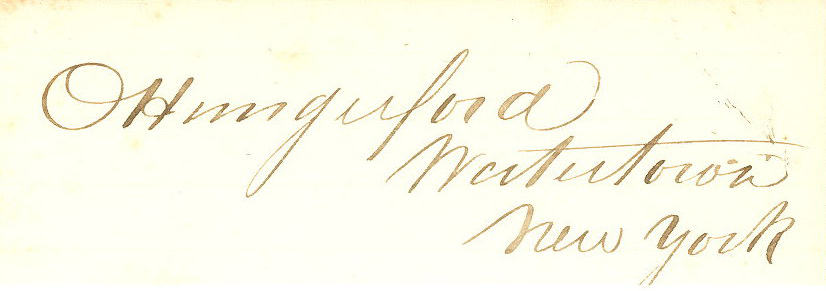 O Hungerford
Watertown
New York